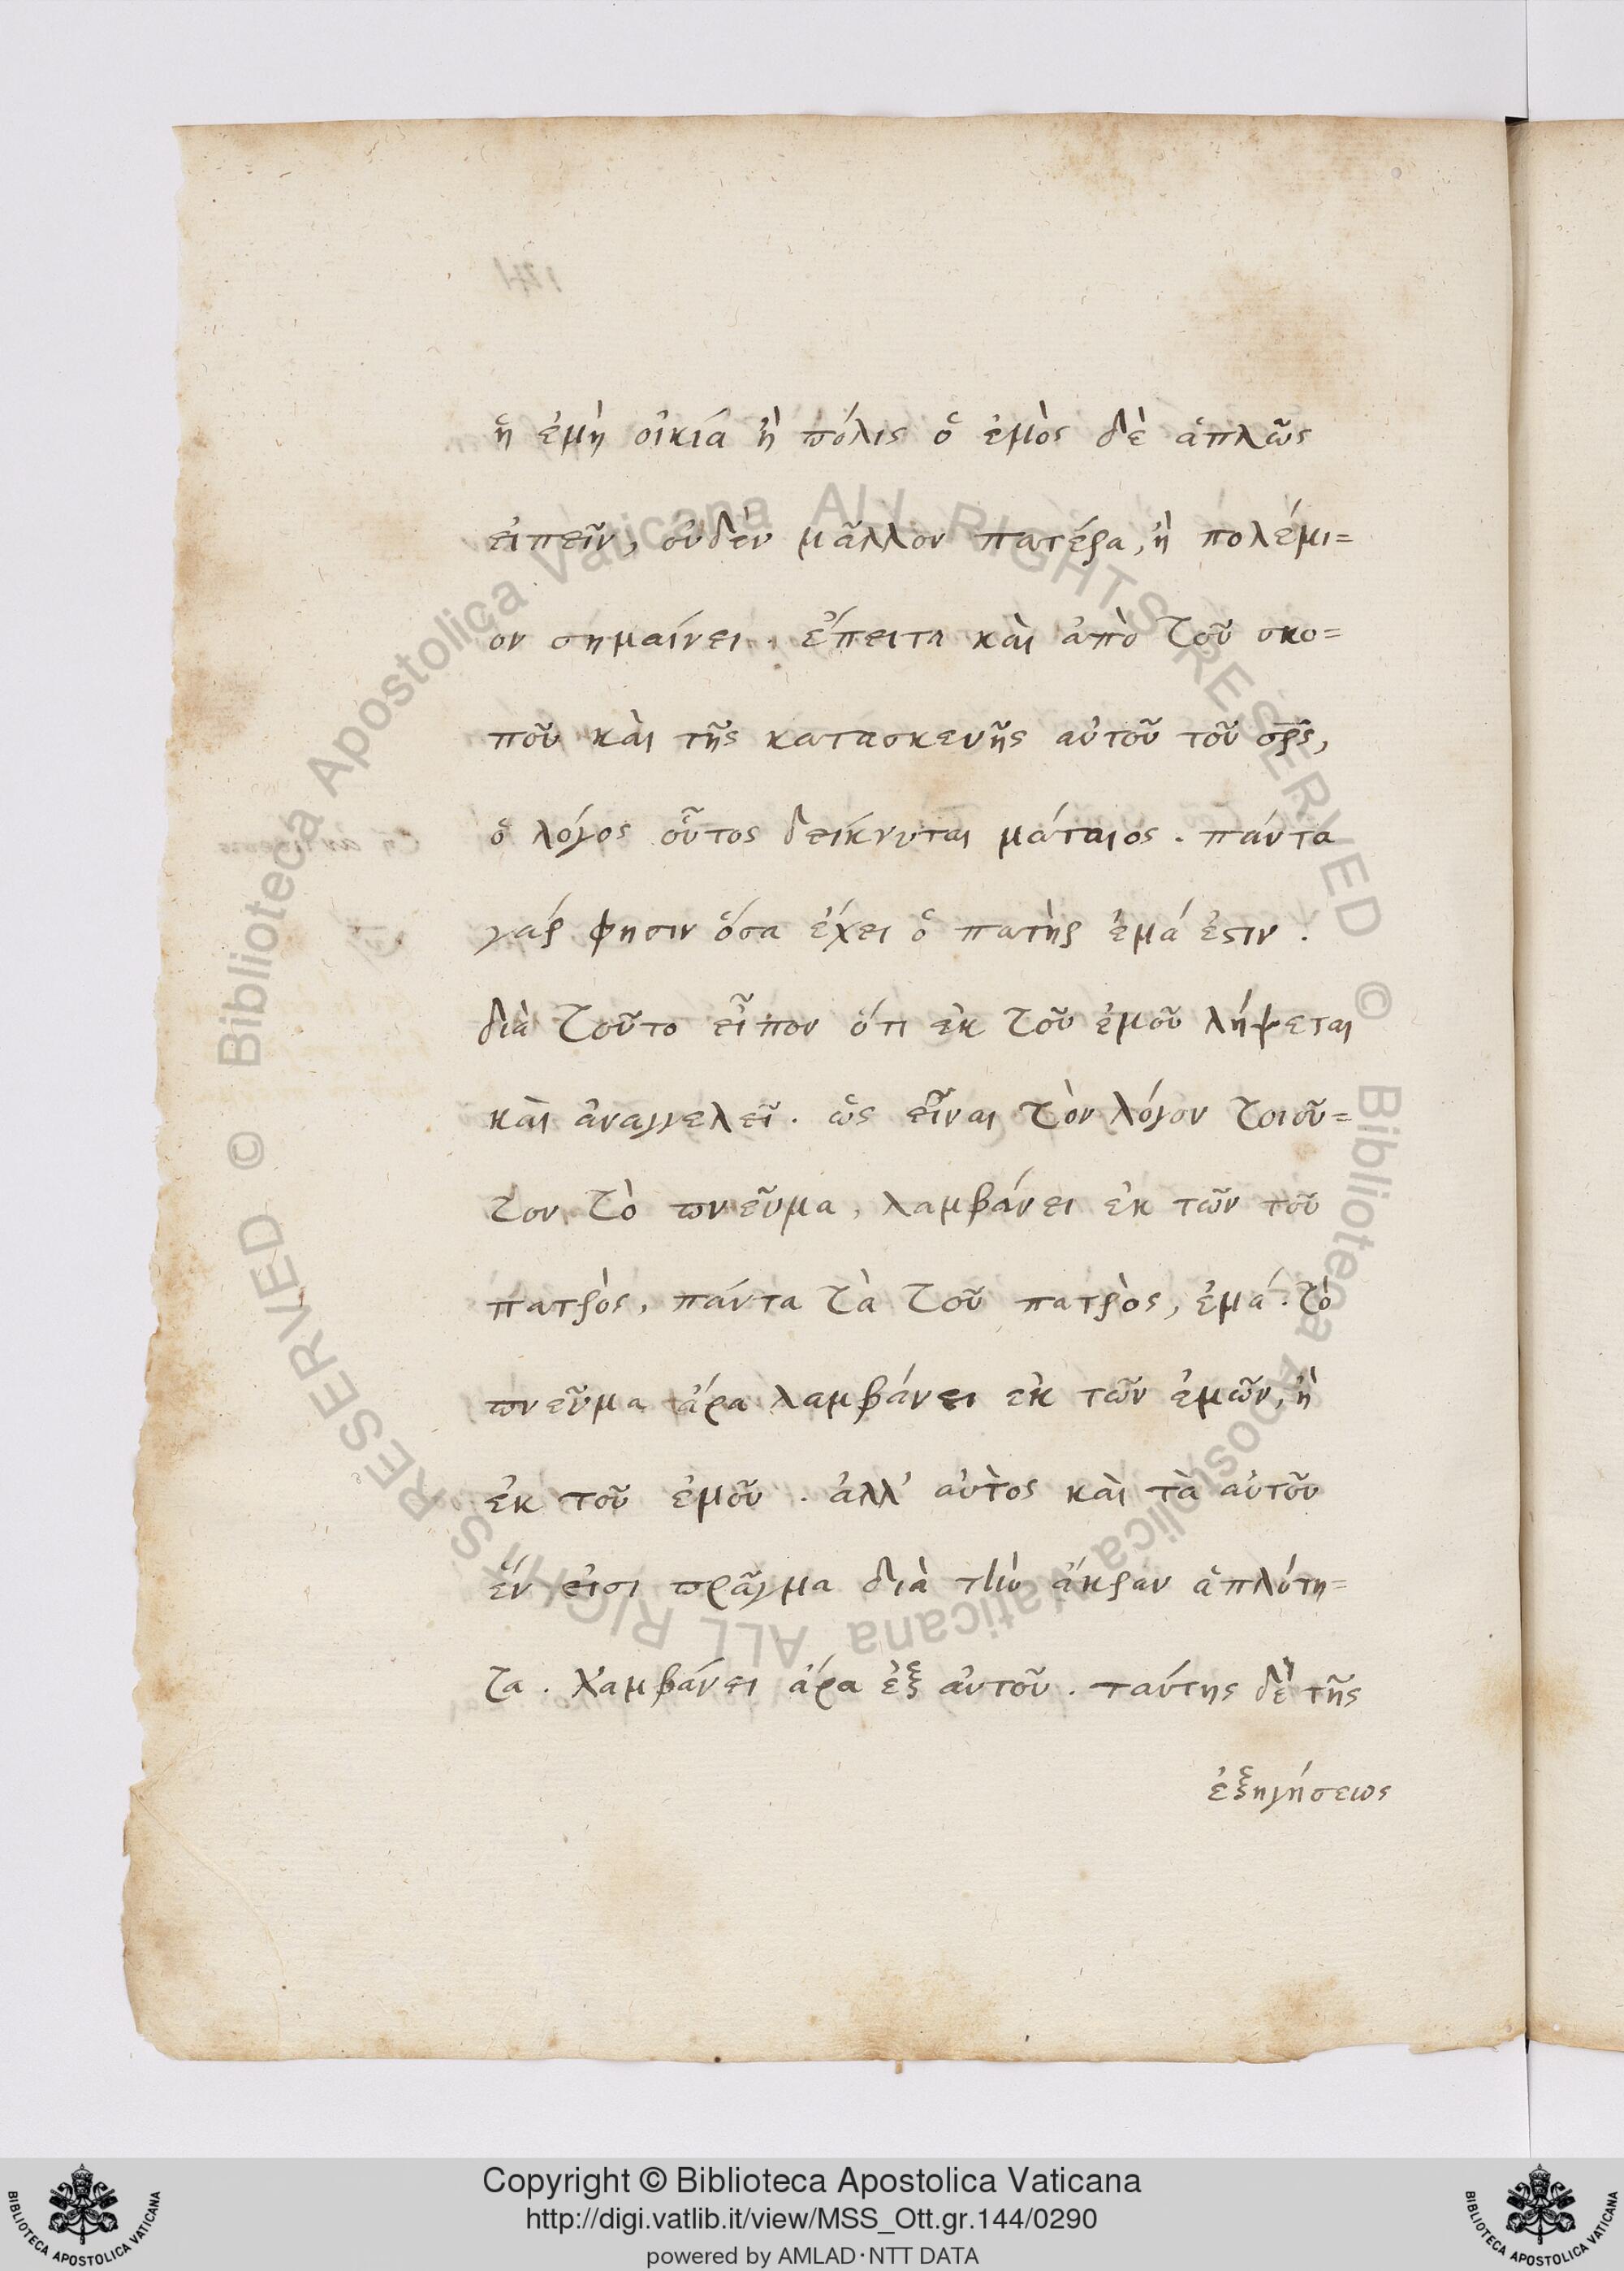 ἡ ἐμὴ οἰκία ἢ πόλις ὁ ἐμὸς δὲ ἁπλῶς
εἰπεῖν, οὐδὲν μᾶλλον πατέρα, ἢ πολέμι=
ον σημαίνει. ἔπειτα καὶ ἀπὸ τοῦ σκο=
ποῦ καὶ τῆς κατασκευῆς αὐτοῦ τοῦ σρς,
ὁ λόγος οὗτος δείκνυται μάταιος. πάντα
γάρ φησιν ὅσα ἔχει ὁ πατὴρ ἐμά ἐστιν.
διὰ τοῦτο εἶπον ὅτι ἐκ τοῦ ἐμοῦ λήψεται
καὶ ἀναγγελεῖ. ὡς εἶναι τὸν λόγον τοιοῦ=
τον τὸ πνεῦμα, λαμβάνει ἐκ τῶν τοῦ
πατρὸς, πάντα τὰ τοῦ πατρὸς, ἐμά. τὸ
πνεῦμα ἄρα λαμβάνει ἐκ τῶν ἐμῶν, ἢ
ἐκ τοῦ ἐμοῦ. ἀλλ' αὐτὸς καὶ τὰ αὐτοῦ
ἕν εἰσι πρᾶγμα διὰ τὴν ἄκραν ἁπλότη=
τα. λαμβάνει ἄρα ἐξ αὐτοῦ. ταύτης δὲ τῆς
ἐξηγήσεως
Copyright © Biblioteca Apostolica Vaticana
http://digi.vatlib.it/view/MSS_Ott.gr.144/0290
powered by AMLAD·NTT DATA
BIBLIOTECA APOSTOLICA VATICANA
BIBLIOTECA APOSTOLICA VATICANA
© Biblioteca Apostolica Vaticana ALL RIGHTS RESERVED
© Biblioteca Apostolica Vaticana ALL RIGHTS RESERVED